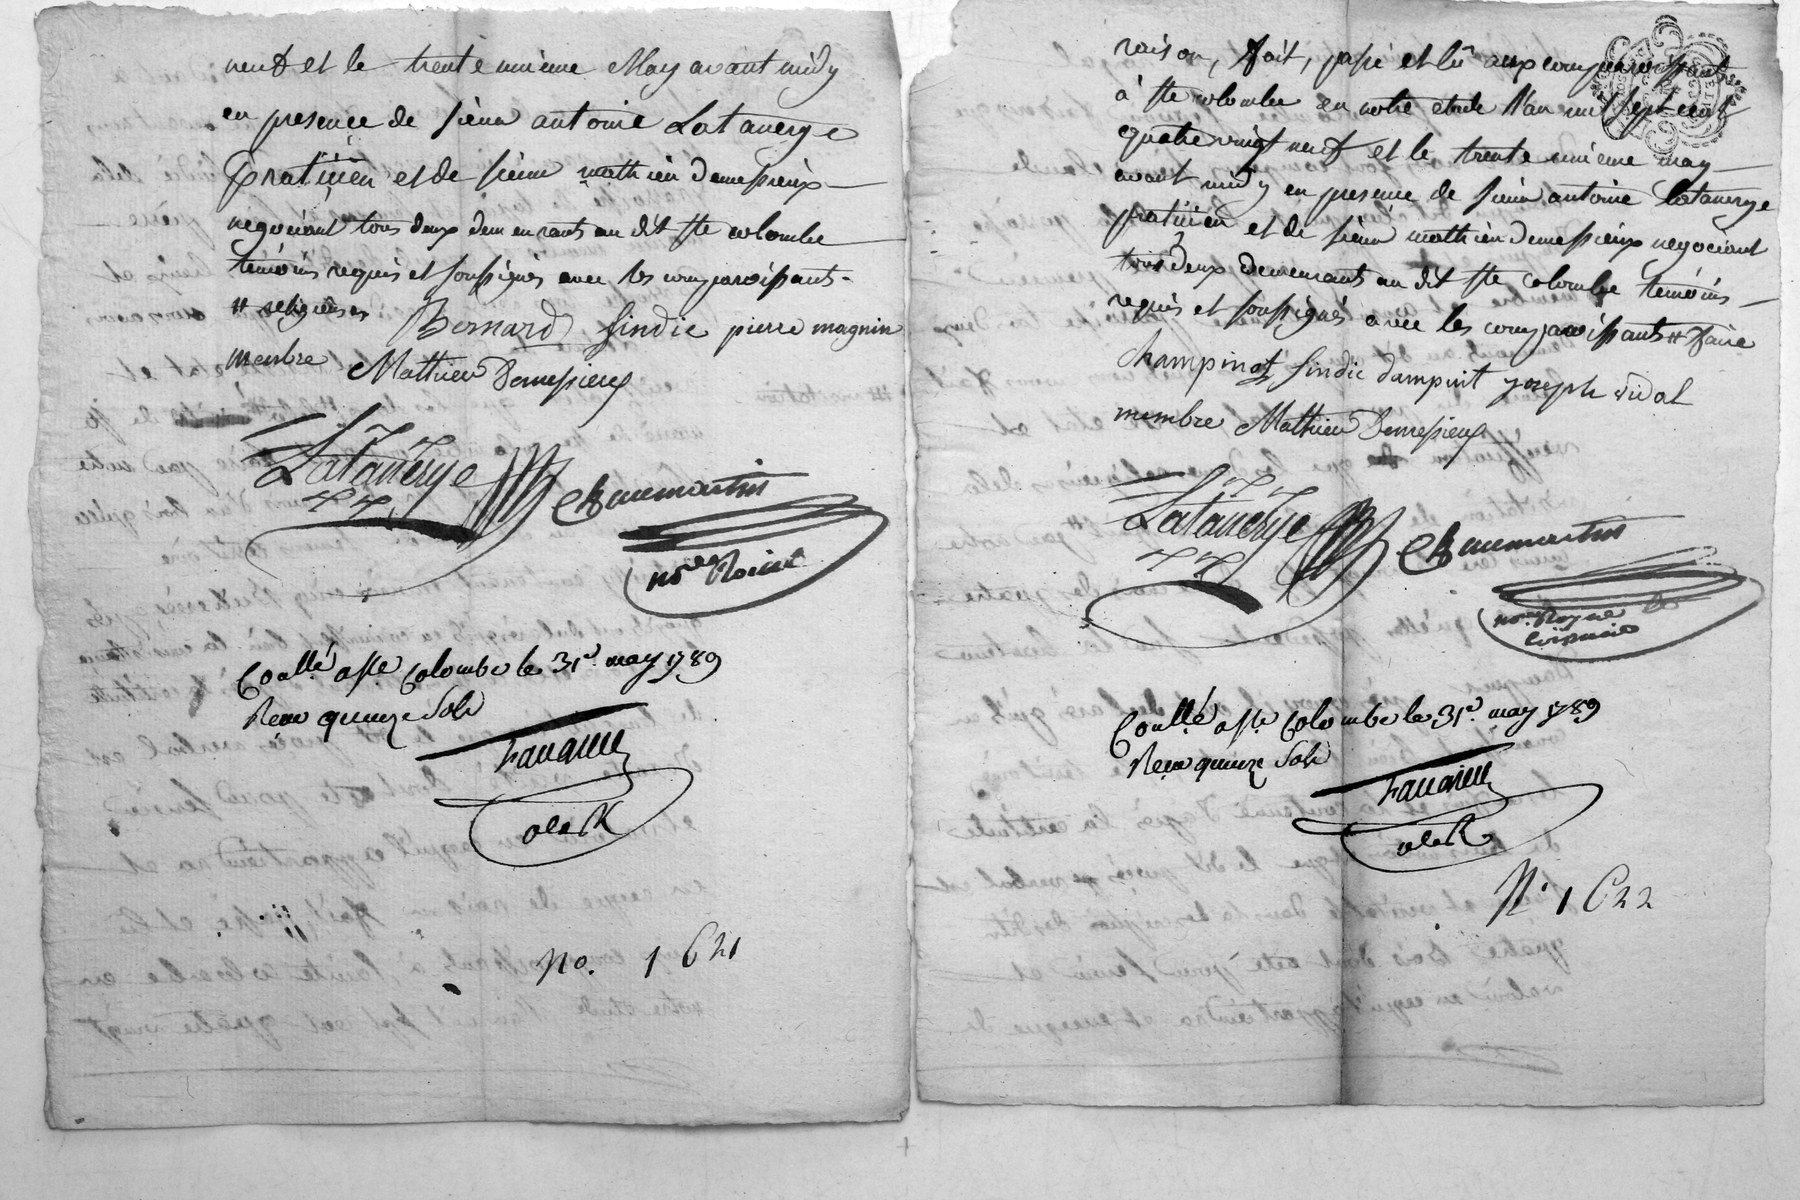 neuf et le trente unieme May avant midy
en presence de sieur antoine Latanerye
praticien et de sieur mathieu demepieux
negociant tous deux demeurants au dit Ste colombe
témoins requis et soussignés avec les comparoissants
Bernard sindic pierre magnin
membre Mathieu Demepieux
Latanerye Chaumartin
no.re Roial
Con.llé a Ste Colombe le 31e. may 1789
Recu quinze Sols
No. 1621
raison, fait, passé et lû aux comparoissants
à Ste colombe en notre etude l'an mil sept cent
quatre vingt neuf et le trente unieme may
avant midy en presence de sieur antoine latanerye
praticien et de sieur mathieu demepieux negociant
tous deux demeurants au dit Ste colombe temoins
requis et soussignés avec les comparoissants
champinot sindic dampuit joseph vidal
membre Mathieu Demepieux
Latanerye Chaumartin
Con.llé a Ste Colombe le 31e. may 1789
Recu quinze Sols
N. 1622